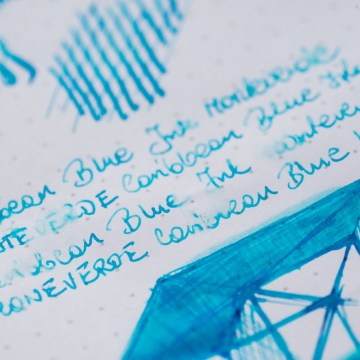 bean Blue Ink Monteverde
TEVERDE Caribbean Blue Ink
bbean Blue Ink Monteve
ONEVERDE Caribbean Blue